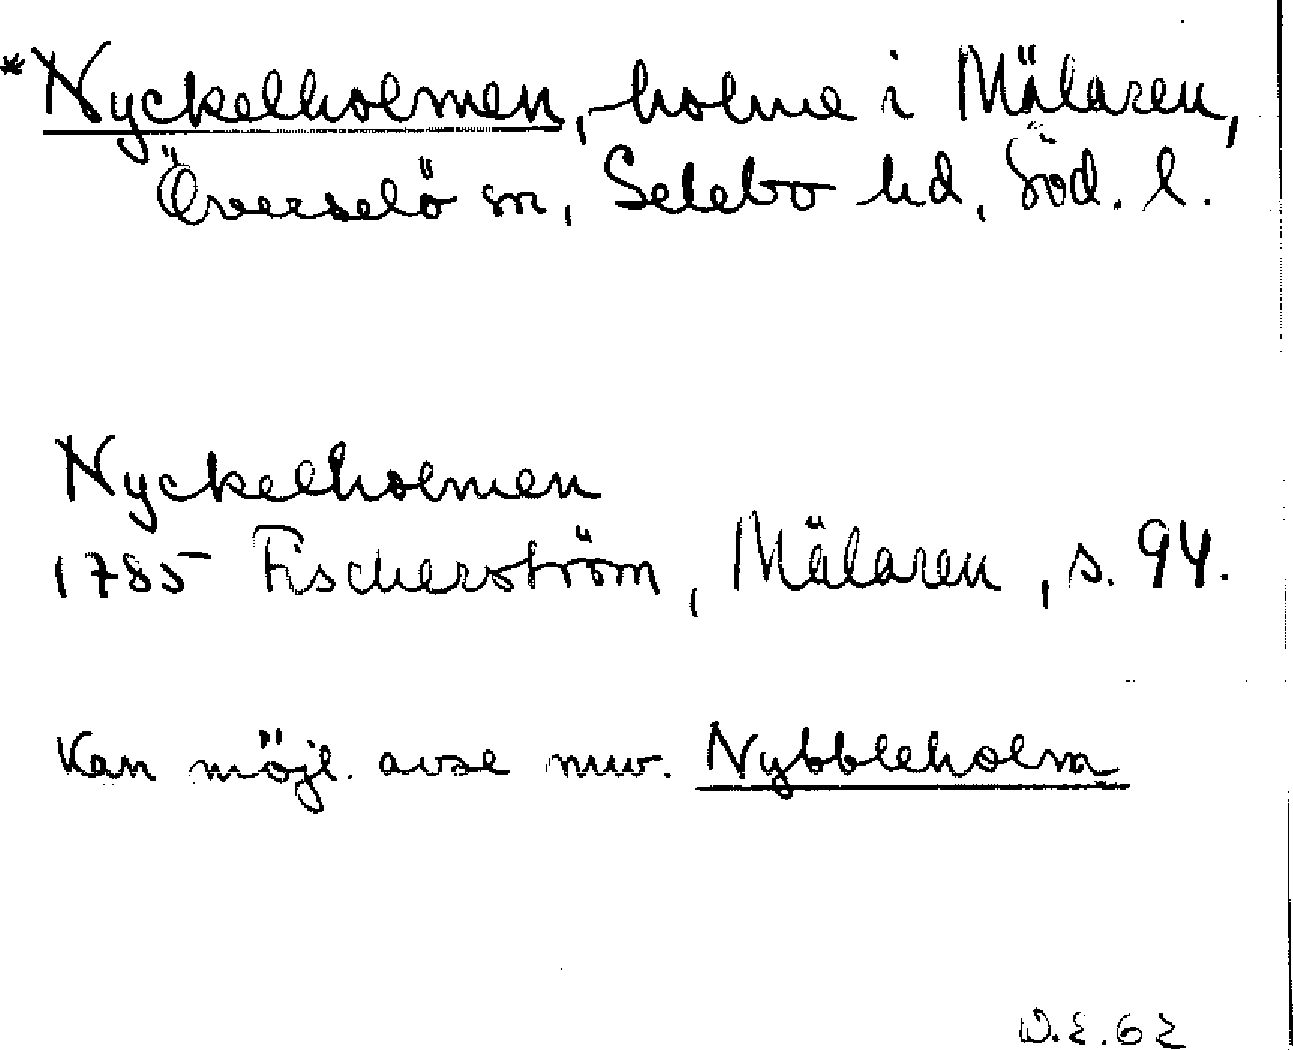 *Nyckelholmen, holme i Mälaren,
Överselö sn, Selebo hd, Söd. l.
Nyckelholmen
1785 Fischerström, Mälaren, s. 94.
Kan möjl. avse nuv. Nybbleholm
D.E.62